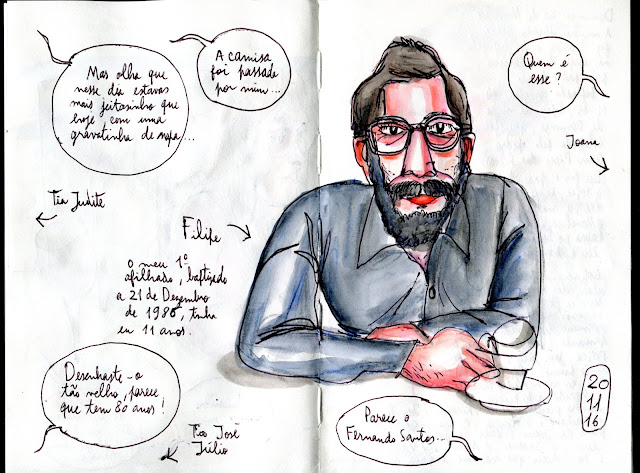 Mas olha que
nesse dia estavas
mais jeitosinho que
hoje, com uma
gravatinha de napa...
A camisa
foi passada
por mim...
Quem é
esse?
Joana
Tia Judite
Filipe
O meu 1º
afilhado, baptizado
a 21 de Dezembro
de 1986, tinha
eu 11 anos.
Desenhaste-o
tão velho, parece
que tem 80 anos!
Tio José
Júlio
Parece o
Fernando Santos...
20
11
16